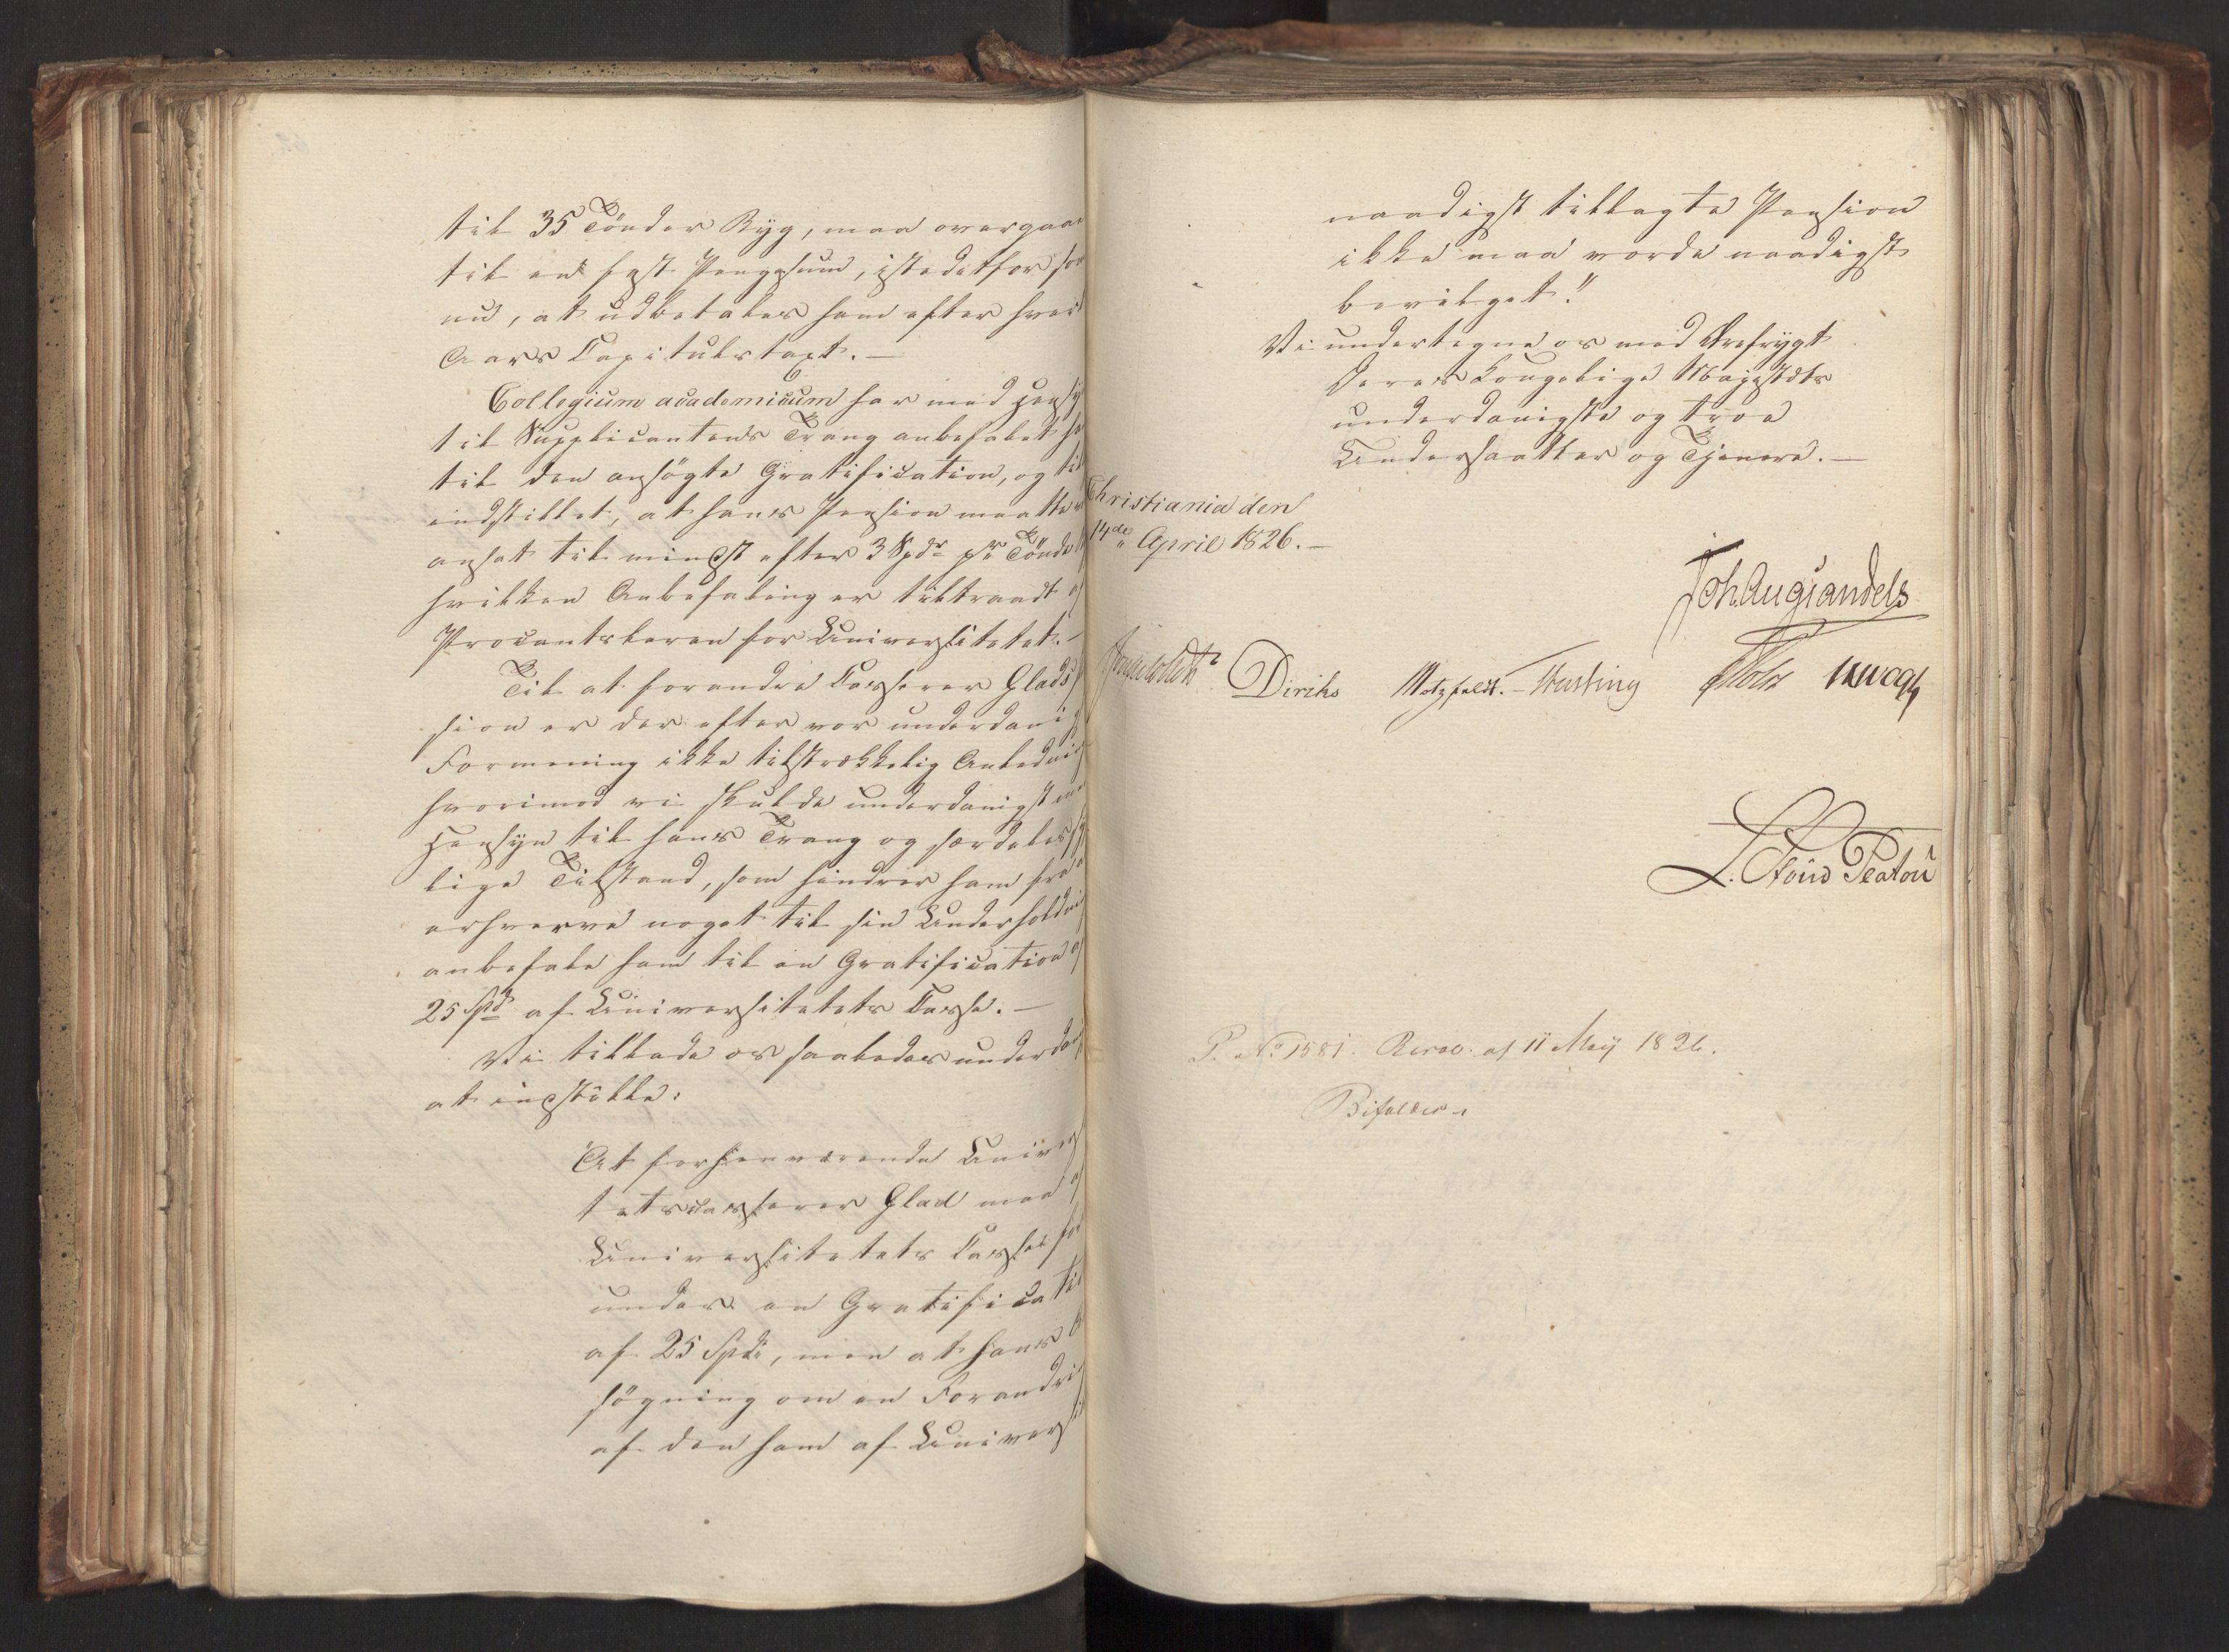 til 35 Tønder Byg, maa overgaae
til en fast Pengesum, istedetfor som
nu, at udbetales ham efter hvert
Aars Capitulstaxt. —
Collegium academicum har med Hensyn
til Supplicantens Trang anbefalet ham
til den ansøgte Gratification, og til
indstillet, at hans Pension maatte
ansat til mindst efter 3 Spdr pr Tønde
hvilken Anbefaling er tiltraadt af
Procantsleren for Universitetet. —
Til at forandre Casserer Glads
sion er der efter vor underdanig
Formening ikke tilstrækkelig Anledning
hvorimod vi skulde underdanigst med
Hensyn til hans Trang og særdeles
lige Tilstand, som hindrer ham fra a
erhverve noget til sin Underholdning
anbefale ham til en Gratification af
25 Spd af Universitetets Casse. —
Vi tillade os saaledes underda
at indstille:
At forhenværende Univers
tetscasserer Glad maa af
Universitetets Casse for
undes en Gratificati
af 25 Spdr, men at hans
søgning om en Forandring
af den ham af Universi
naadigst tillagte Pension
ikke maa vorde naadigst
bevilget!"
Vi undertegne os med Ærefrygt
Deres Kongelige Majestæts
underdanigste og troe
Undersaatter og Tjenere. —
Christiania den
14de April 1826. —
Joh Aug Sandels
Diriks Motzfeldt. Holst
L. Røaton
P. No 1581. Resol. af 11 Maij 1826.
Bifaldes